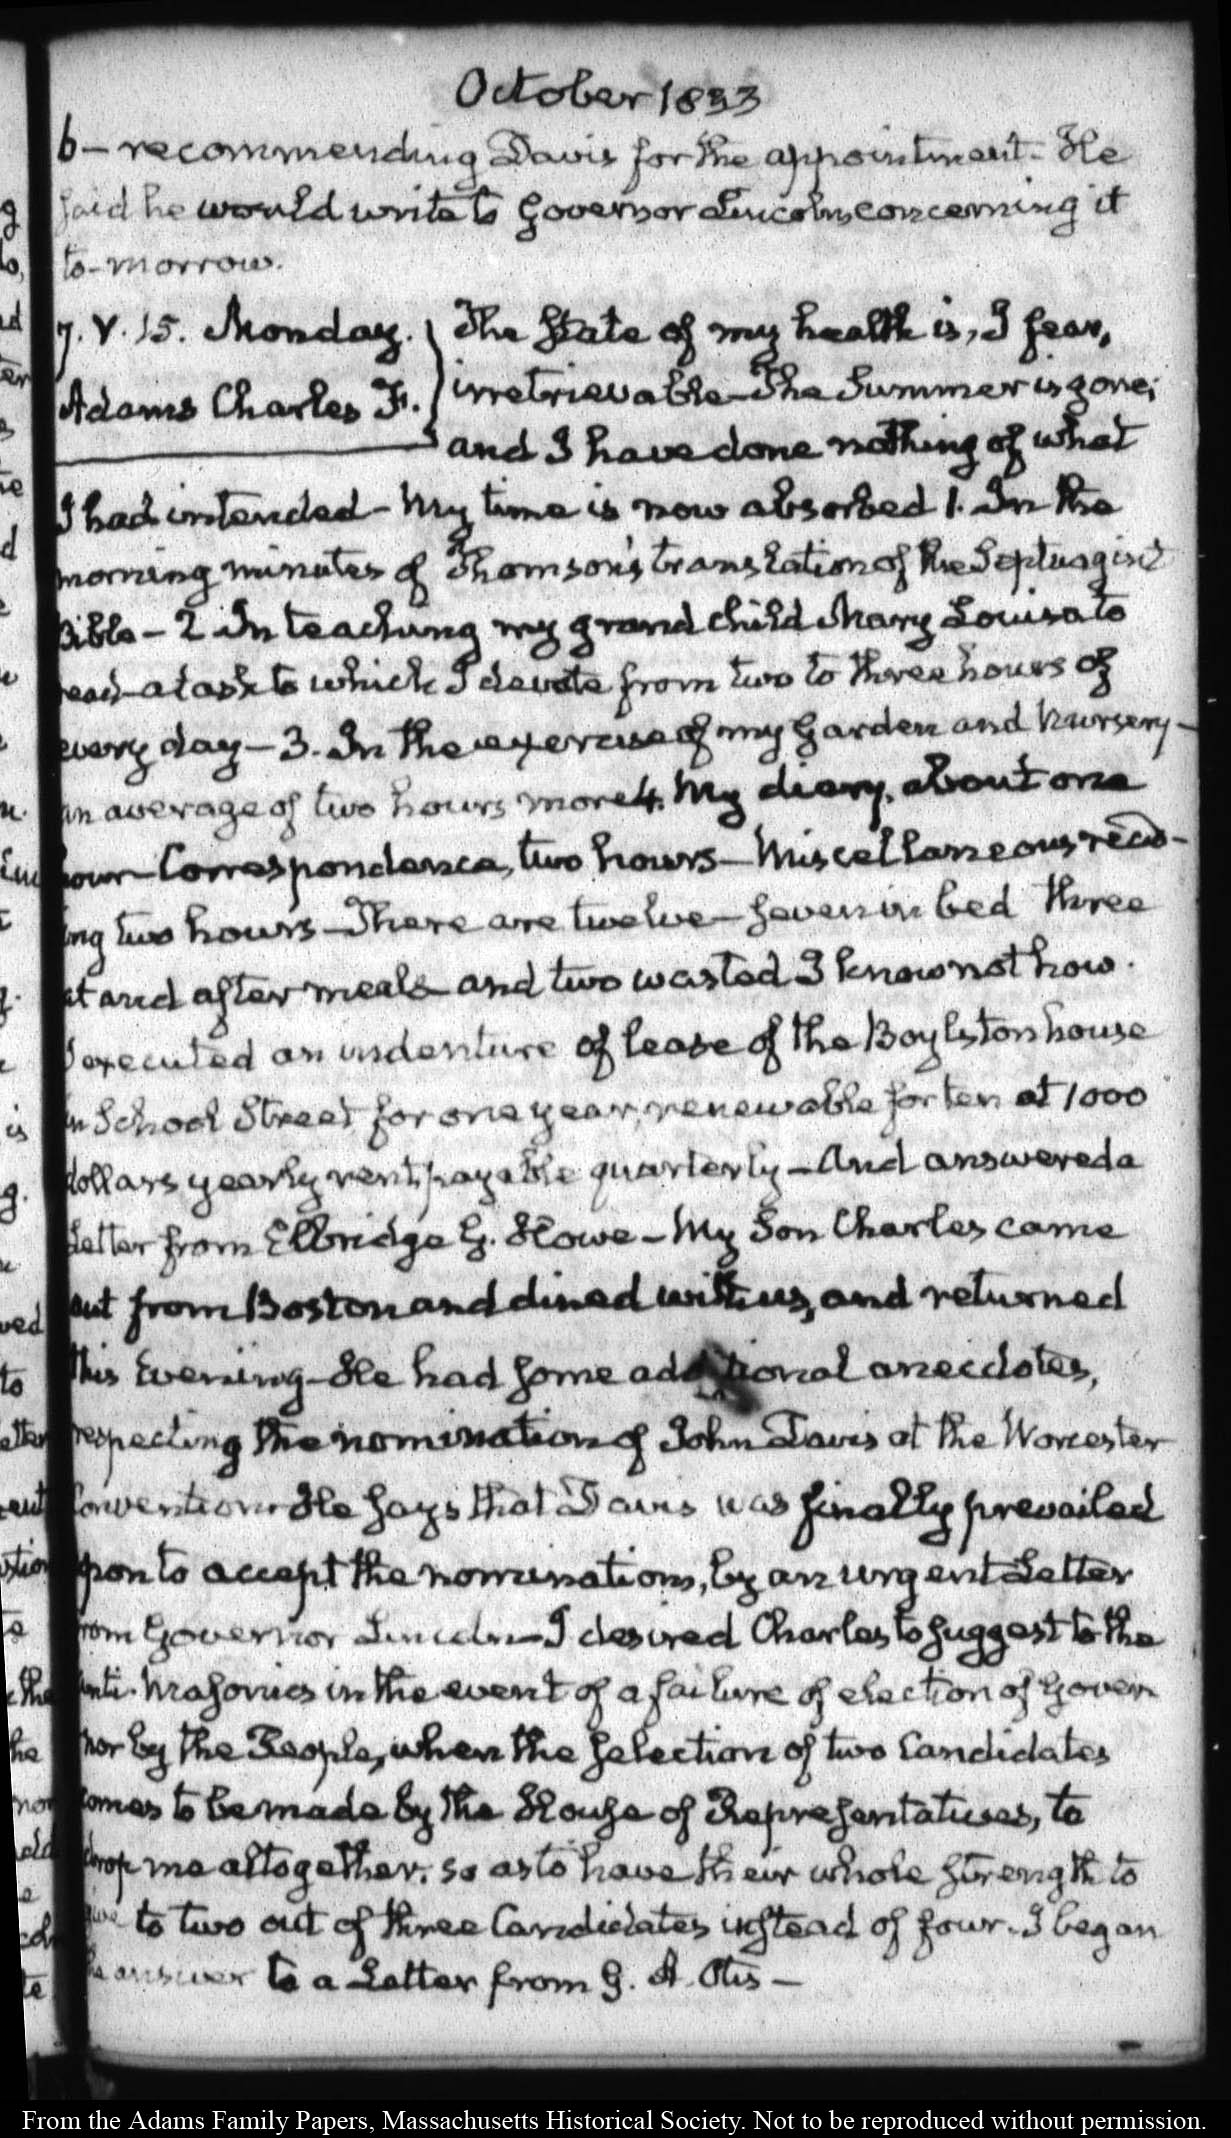 October 1833
6 — recommending Davis for the appointment — He
said he would write to Governor Lincoln concerning it
to-morrow.
7. V. 15. Monday. The State of my health is, I fear,
Adams Charles F. irretrievable — The Summer is gone;
and I have done nothing of what
I had intended — My time is now absorbed 1. In the
morning minutes of Thomson's translation of the Septuagint
Bible — 2 In teaching my grand child Mary Louisa to
read — a task to which I devote from two to three hours of
every day — 3. In the exercise of my Garden and Nursery —
an average of two hours more 4. My diary, about one
hour — Correspondence, two hours — Miscellaneous read-
ing two hours — There are twelve — seven in bed three
at and after meals and two wasted I know not how.
I executed an indenture of lease of the Boylston house
in School Street for one year, renewable for ten at 1000
dollars yearly rent, payable quarterly — And answered a
Letter from Elbridge G. Howe — My Son Charles came
out from Boston and dined with us, and returned
this Evening — He had some additional anecdotes,
respecting the nomination of John Davis at the Worcester
Convention — He says that Davis was finally prevailed
upon to accept the nomination, by an urgent Letter
from Governor Lincoln — I desired Charles to suggest to the
Anti-Masonics in the event of a failure of election of Gover-
nor by the People, when the selection of two Candidates
comes to be made by the House of Representatives, to
drop me altogether, so as to have their whole strength to
give to two out of three Candidates instead of four. I began
the answer to a Letter from G. A. Otis —
From the Adams Family Papers, Massachusetts Historical Society. Not to be reproduced without permission.